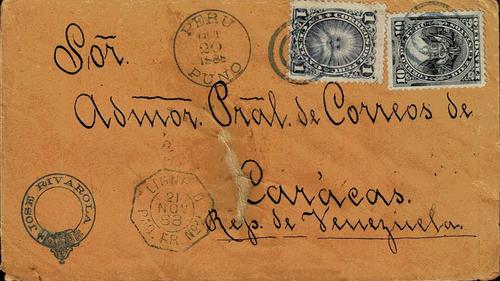 PERU
OCT
20
PUNO
1
1
10
10
Sor.
Admor. Pral. de Correos de
Carácas.
Rep. de Venezuela.
JOSE RIVAROLA
LIGNE D
21
NOV
88
PAQ. FR.